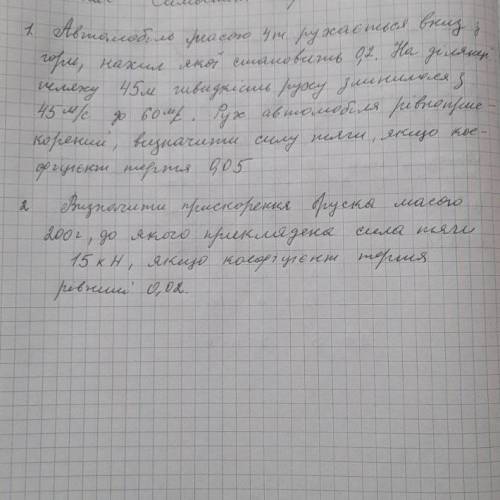 1. Автомобіль масою 4т рухається вниз з
гори, нахил якої становить 0,2. На ділянці
шляху 45м швидкість руху змінилася з
45 м/с до 60 м/с. Рух автомобіля рівноприс-
корений, визначити силу тяги, якщо кое-
фіцієнт тертя 0,05
2 Визначити прискорення бруска масою
200г, до якого прикладена сила тяги
15 кН, якщо коефіцієнт тертя
рівний 0,02.